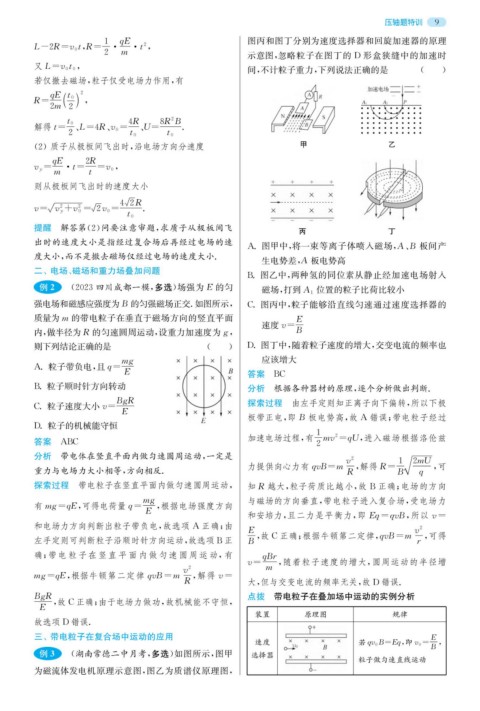 压轴题特训 9
L-2R=v₀t,R=1/2·qE/m·t²,
又 L=v₀t₀,
若仅撤去磁场,粒子仅受电场力作用,有
R=qE/2m(t₀/2)²,
解得 t=t₀/2,L=4R、v₀=4R/t₀、U=8R²B/t₀.
(2) 质子从极板间飞出时,沿电场方向分速度
vᵧ=qE/m·t=2R/t=v₀,
则从极板间飞出时的速度大小
v=√(vᵧ²+v₀²)=√2v₀=4√2R/t₀.
提醒 解答第(2)问要注意审题,求质子从极板间飞
出时的速度大小是指经过复合场后再经过电场的速
度大小,而不是撤去磁场仅经过电场的速度大小.
二、电场、磁场和重力场叠加问题
例2 (2023 四川成都一模,多选)场强为 E 的匀
强电场和磁感应强度为 B 的匀强磁场正交.如图所示,
质量为 m 的带电粒子在垂直于磁场方向的竖直平面
内,做半径为 R 的匀速圆周运动,设重力加速度为 g,
则下列结论正确的是 ( )
A. 粒子带负电,且 q=mg/E
B. 粒子顺时针方向转动
C. 粒子速度大小 v=BgR/E
D. 粒子的机械能守恒
B
E
答案 ABC
分析 带电体在竖直平面内做匀速圆周运动,一定是
重力与电场力大小相等,方向相反.
探索过程 带电粒子在竖直平面内做匀速圆周运动,
有 mg=qE,可得电荷量 q=mg/E,根据电场强度方向
和电场力方向判断出粒子带负电,故选项 A 正确;由
左手定则可判断粒子沿顺时针方向运动,故选项 B 正
确;带电粒子在竖直平面内做匀速圆周运动,有
mg=qE,根据牛顿第二定律 qvB=mv²/R,解得 v=
BgR/E,故 C 正确;由于电场力做功,故机械能不守恒,
故选项 D 错误.
三、带电粒子在复合场中运动的应用
例3 (湖南常德二中月考,多选)如图所示,图甲
为磁流体发电机原理示意图,图乙为质谱仪原理图,
图丙和图丁分别为速度选择器和回旋加速器的原理
示意图,忽略粒子在图丁的 D 形盒狭缝中的加速时
间,不计粒子重力,下列说法正确的是 ( )
加速电场
甲 乙
丙 丁
A. 图甲中,将一束等离子体喷入磁场,A、B 板间产
生电势差,A 板电势高
B. 图乙中,两种氢的同位素从静止经加速电场射入
磁场,打到 A₁ 位置的粒子比荷比较小
C. 图丙中,粒子能够沿直线匀速通过速度选择器的
速度 v=E/B
D. 图丁中,随着粒子速度的增大,交变电流的频率也
应该增大
答案 BC
分析 根据各种器材的原理,逐个分析做出判断.
探索过程 由左手定则知正离子向下偏转,所以下极
板带正电,即 B 板电势高,故 A 错误;带电粒子经过
加速电场过程,有1/2mv²=qU,进入磁场根据洛伦兹
力提供向心力有 qvB=mv²/R,解得 R=1/B√(2mU/q),可
知 R 越大,粒子荷质比越小,故 B 正确;电场的方向
与磁场的方向垂直,带电粒子进入复合场,受电场力
和安培力,且二力是平衡力,即 Eq=qvB,所以 v=
E/B,故 C 正确;根据牛顿第二定律,qvB=mv²/r,可得
v=qBr/m,随着粒子速度的增大,圆周运动的半径增
大,但与交变电流的频率无关,故 D 错误.
点拨 带电粒子在叠加场中运动的实例分析
装置 原理图 规律
速度
选择器
若 qv₀B=Eq,即 v₀=E/B,
粒子做匀速直线运动